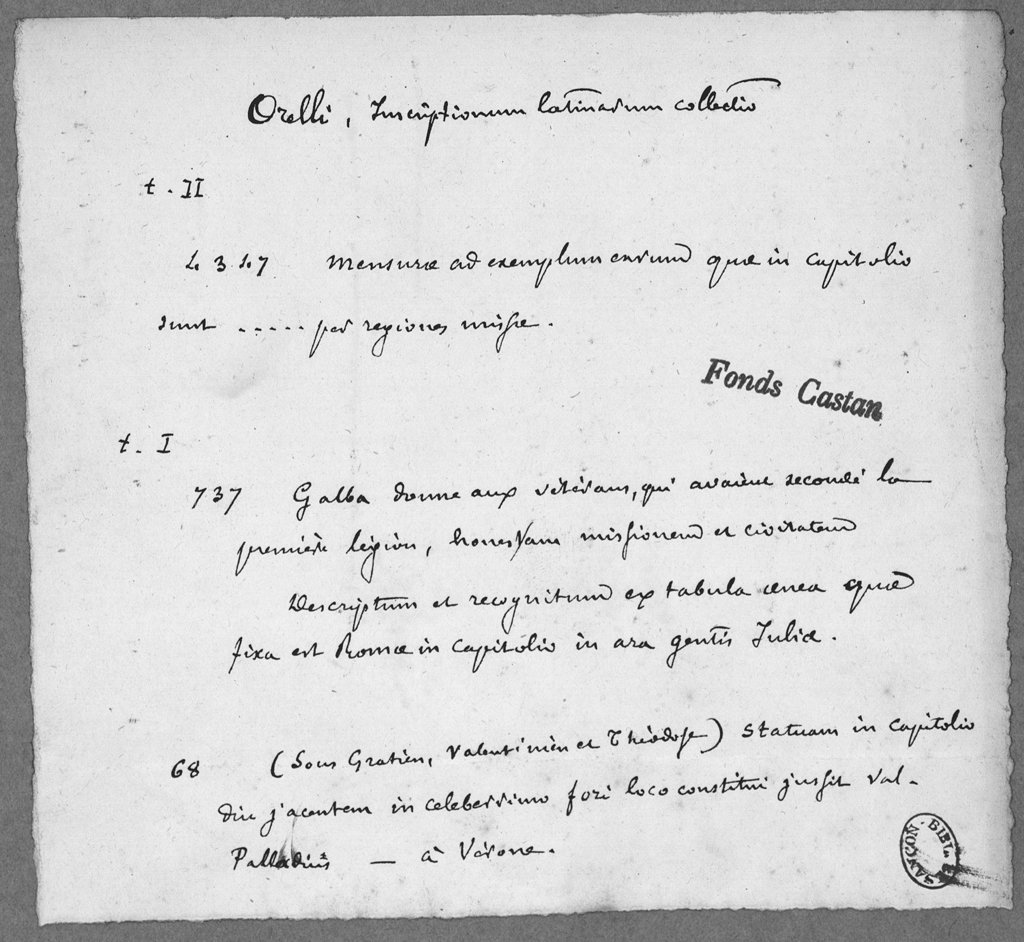 Orelli, Inscriptionum latinarum collectio
t. II
4347 Mensuræ ad exemplum earum quæ in Capitolio
sunt ..... per regiones missæ.
Fonds Castan
t. I
737 Galba donne aux vétérans, qui avaient secondé la
première légion, honestam missionem et civitatem
Descriptum et recognitum ex tabula ænea quæ
fixa est Romæ in Capitolio in ara gentis Juliæ.
68 (Sous Gratien, Valentinien et Théodose) Statuam in Capitolio
diu jacentem in celeberrimo fori loco constitui jussit Val.
Palladius — à Vérone.
BIBL. BESANÇON